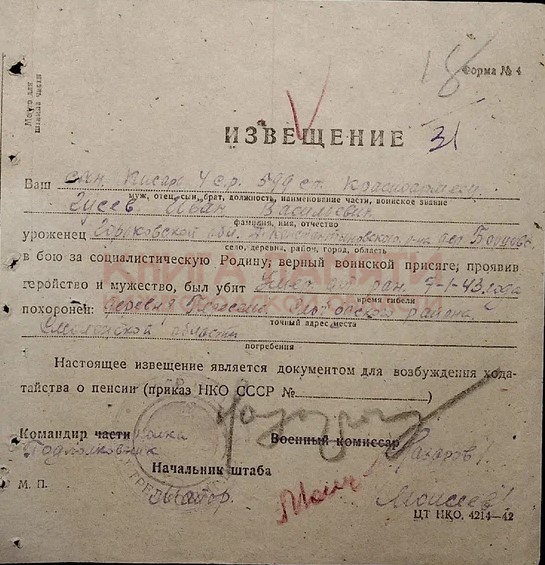 18
Форма № 4
Место для
штампа части
ИЗВЕЩЕНИЕ 31
Ваш сын. Писарь 4 с.р. 599 сп. Красноармеец
муж, отец, сын, брат, должность, наименование части, воинское звание
Гусев Иван Васильевич
фамилия, имя, отчество
уроженец Горьковской обл. Д. Константиновского р-на
село, деревня, район, город, область
в бою за социалистическую Родину, верный воинской присяге, проявив
КНИГА ПАМЯТИ
геройство и мужество, был убит Умер от ран. 7-1-43 года
время гибели
похоронен: деревня района
точный адрес места
Смоленской области
погребения
Настоящее извещение является документом для возбуждения хода-
тайства о пенсии (приказ НКО СССР № )
Командир части полка Военный комиссар
Подполковник
Начальник штаба
М. П. Майор Моисеев
ЦТ НКО. 4214—42